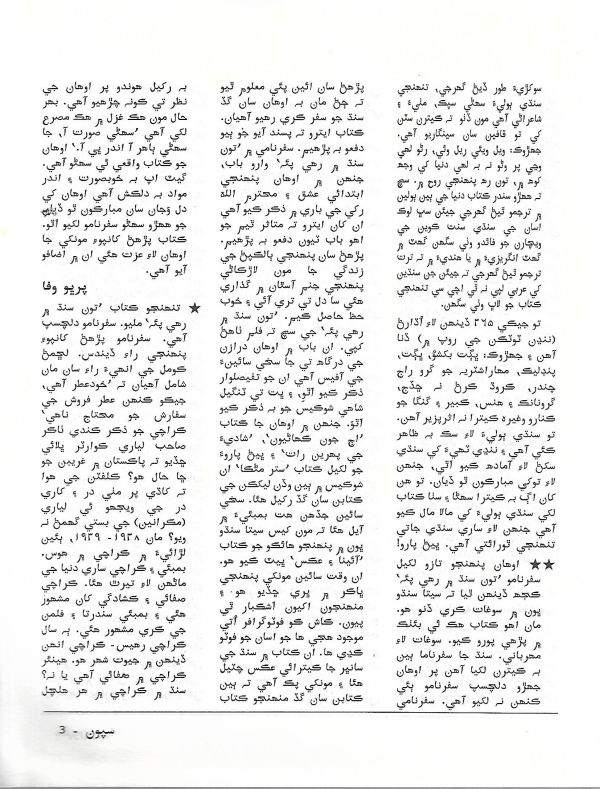 سوکڙيءَ طور ڏيڻ گهرجي، تنهنجي
سنڌي ٻوليءَ سهڻي سپڪ، مٺيءَ ۽
شاعراڻي آهي مون ڏٺو ته ڪيترن سٽن
کي تو قافين سان سينگاريو آهي.
جهڙوڪ: ويل ويئي ريل وئي، رڻو لهي
وڃي پر وڻو نہ بہ لهي دنيا کي وڃھ
کوھ ۾، تون رھ پنهنجي روح ۾. سچ
تہ هھڙو سندر ڪتاب دنيا جي ٻين ٻولين
۾ ترجمو ٿيڻ گهرجي جيئن سڀ لوڪ
اسان جي سنڌي سنت ڪوين جي
ويچارن جو فائدو وٺي سگهن گهٽ ۾
گهٽ انگريزيءَ ۾ يا هنديءَ ۾ تہ ترت
ترجمو ٿيڻ گهرجي تہ جيئن جن سنڌين
کي عربي لپي نہ ٿي اچي سي تنهنجي
ڪتاب جو لاڀ وٺي سگهن.
تو جيڪي ۳٦٥ ڏينهن لاءِ آڌارڻ
(ننڍن ٽوٽڪن جي روپ ۾) ڏنا
آهن ۽ جهڙوڪ: ڀڳت بکشو، ڀڳت،
پنڊليڪ، مهاراشٽريه جو گرو راڄ
چندر، ڪروڌ ڪرڻ نہ ڇڏج،
گرونانڪ ۽ هنس، ڪبير ۽ گنگا جو
ڪنارو وغيرہ ڪيترا نہ اثرپزير آهن.
تو سنڌي ٻوليءَ لاءِ سڪ بہ ظاهر
ڪئي آهي ۽ ننڍي ٽهيءَ کي سنڌي
سکڻ لاءِ آمادھ ڪيو اٿئي، جنهن
لاءِ توکي مبارڪون ٿو ڏيان. تو هن
کان اڳ بہ ڪيترا سهڻا ۽ سٺا ڪتاب
لکي سنڌي ٻوليءَ کي مالا مال ڪيو
آهي جنهن لاءِ ساري سنڌي جاتي
تنهنجي ٿورائتي آهي. ڀيڻ پاروا
★★ اوهان پنهنجو تازو لکيل
سفرنامو 'تون سنڌ ۾ رهي پئہ'
ڪجھ ڏينهن ليا تہ سيتا سنڌو
ڀون ۾ سوغات ڪري ڏنو هو.
مان اهو ڪتاب هڪ ئي بئنڪ
۾ پڙهي پورو ڪيو. سوغات لاءِ
مهرباني. سنڌ جا سفرناما ٻين
بہ ڪيترن لکيا آهن پر اوهان
جهڙو دلچسپ سفرنامو ٻئي
ڪنهن نہ لکيو آهي. سفرنامي
پڙهڻ سان ائين پئي معلوم ٿيو
تہ ڄڻ مان بہ اوهان سان گڏ
سنڌ جو سفر ڪري رهيو آهيان.
ڪتاب ايترو تہ پسند آيو جو ٻيو
دفعو بہ پڙهيم. سفرنامي ۾ 'تون
سنڌ ۾ رهي پئہ' وارو باب،
جنهن ۾ اوهان پنهنجي
ابتدائي عشق ۽ محترم الله
رکي جي باري ۾ ذڪر ڪيو آهي
ان کان ايترو تہ متاثر ٿيم جو
اهو باب ٽيون دفعو بہ پڙهيم.
پڙهڻ سان پنهنجي بالڪپڻ جي
زندگي جا مون لاڙڪاڻي
پنهنجي جنم آستان ۾ گذاري
هئي سا دل تي تري آئي ۽ خوب
حظ حاصل ڪيم. 'تون سنڌ ۾
رهي پئہ' جي سچ تہ فلم ٺاهڻ
کپي. ان باب ۾ اوهان درازن
جي درگاھ تي جا سخي سائينءَ
جي آفيس آهي ان جو تفصيلوار
ذڪر ڪيو اٿو، ۽ ڀت تي ٽنگيل
شاهي شوڪيس جو بہ ذڪر ڪيو
اٿو. جنهن ۾ اوهان جا ڪتاب
'اڄ جون کهاڻيون'، 'شاديءَ
جي پهرين رات' ۽ ڀيڻ پاروءَ
جو لکيل ڪتاب 'ستر مڻڪا' ان
شوڪيس ۾ ٻين وڏن ليکڪن جي
ڪتابن سان گڏ رکيل هئا. سخي
سائين جڏهن هت بمبئيءَ ۾
آيل هئا تہ مون کيس سيتا سنڌو
ڀون ۾ پنهنجو هائڪو جو ڪتاب
'آئينا ۽ عڪس' ڀيٽ ڪيو هو.
ان وقت سائين مونکي پنهنجي
ڀاڪر ۾ ڀري ڇڏيو هو ۽
منهنجون اکيون اشڪبار ٿي
پيون. ڪاش ڪو فوٽوگرافر اُتي
موجود هجي ها جو اسان جو فوٽو
ڪڍي ها. ان ڪتاب ۾ سنڌ جي
سانڀر جا ڪيترائي عڪس چٽيل
هئا ۽ مونکي پڪ آهي تہ ٻين
ڪتابن سان گڏ منهنجو ڪتاب
بہ رکيل هوندو پر اوهان جي
نظر تي ڪونہ چڙهيو آهي. بهر
حال مون هڪ غزل ۾ هڪ مصرع
لکي آهي 'سهڻي صورت آ، جا
سهڻي ٻاهر آ اندر پي آ.' اوهان
جو ڪتاب واقعي ئي سهڻو آهي.
گيٽ اپ بہ خوبصورت ۽ اندر
مواد بہ دلڪش آهي اوهان کي
دل وجان سان مبارڪون ٿو ڏيان
جو هھڙو سهڻو سفرنامو لکيو اٿو.
ڪتاب پڙهڻ کانپوءِ مونکي جا
اوهان لاءِ عزت هئي ان ۾ اضافو
آيو آهي.
پرڀو وفا
★ تنهنجو ڪتاب 'تون سنڌ ۾
رهي پئہ' مليو. سفرنامو دلچسپ
آهي. سفرنامو پڙهڻ کانپوءِ
پنهنجي راءِ ڏيندس. لڇمڻ
ڪومل جي انهيءَ راءِ سان مان
شامل آهيان تہ 'خودعطر آهي،
جيڪو ڪنهن عطر فروش جي
سفارش جو محتاج ناهي'
ڪراچي جو ذڪر ڪندي ٺاڪر
صاحب لياري ڪوارٽر ڀلائي
ڇڏيو تہ پاڪستان ۾ غريبن جو
ڇا حال هو؟ ڪلفٽن جي هوا
تہ کاڌي پر مٺي در ۽ کاري
در جي ويجهو ئي لياري
(مڪرانين) جي بستي گهمڻ نہ
ويو؟ مان ۱۹۳۸- ۱۹۳۹، ٻئين
لڙائيءَ ۾ ڪراچي ۾ هوس.
بمبئي ۽ ڪراچي ساري دنيا جي
ماڻهن لاءِ تيرٿ هئا. ڪراچي
صفائي ۽ ڪشادگي کان مشهور
هئي ۽ بمبئي سندرتا ۽ فلمن
جي ڪري مشهور هئي. ٻہ سال
ڪراچي رهيس- ڪراچي انهن
ڏينهن ۾ جيوت شهر هو. هينئر
ڪراچي ۾ صفائي آهي يا نہ؟
سنڌ ۾ ڪراچي ۾ هر هلچل
سپون - 3